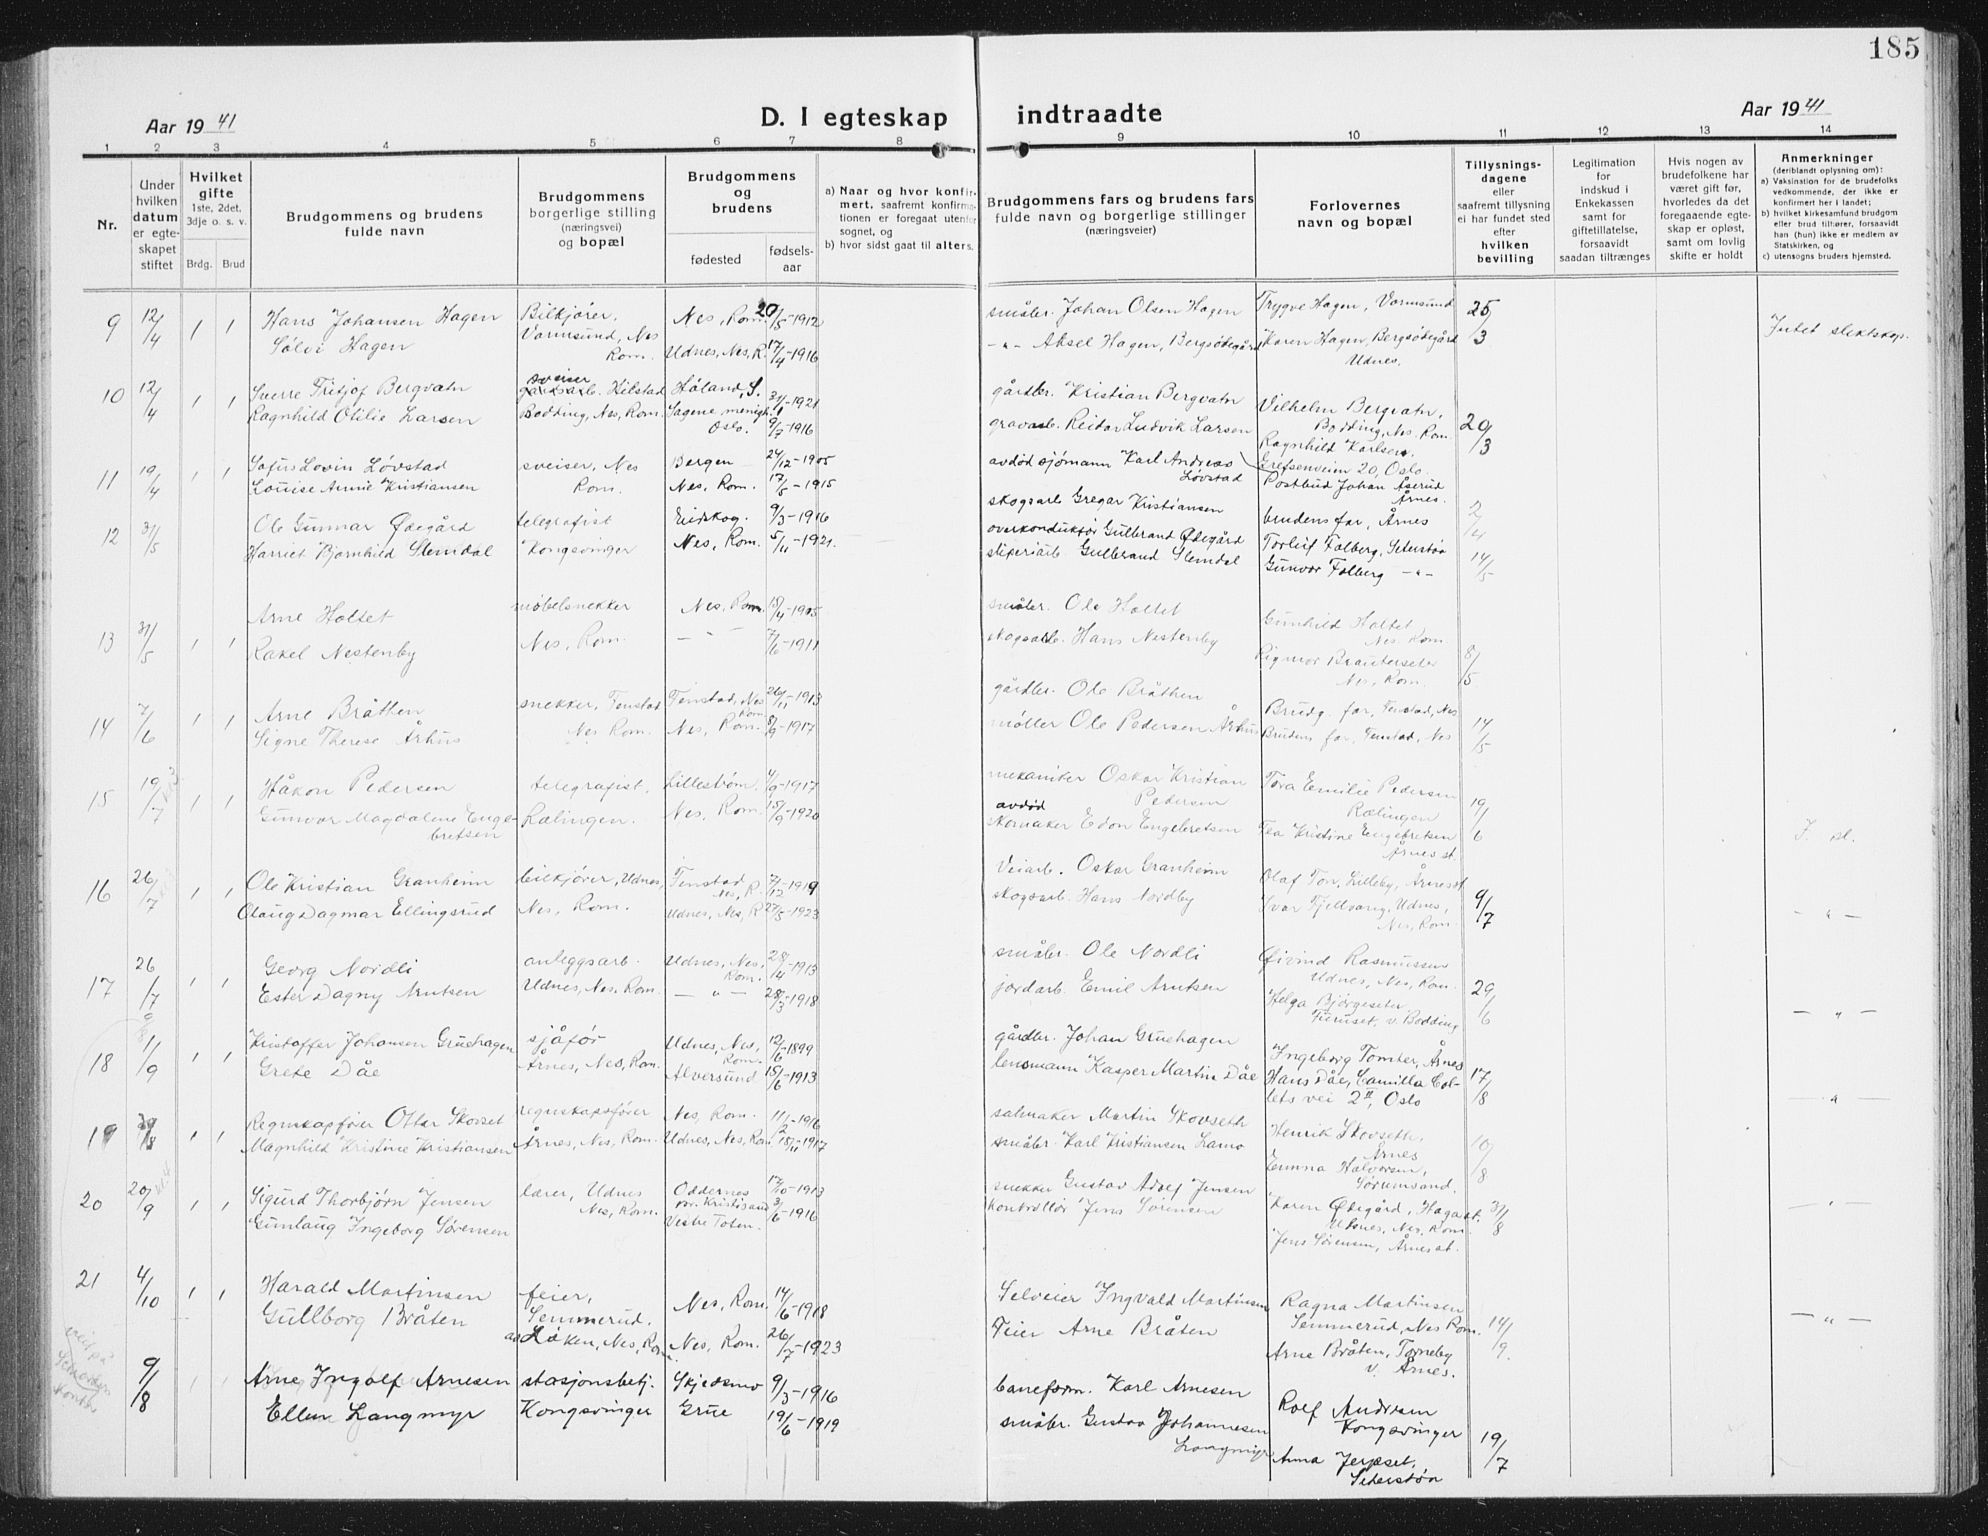 185
Aar 19 41
D. I egteskap indtraadte
Aar 19 41
1 2 3 4 5 6 7 8 9 10 11 12 13 14
Nr.
Under hvilken datum er egteskapet stiftet
Hvilket gifte 1ste, 2det, 3dje o. s. v.
Brdg. Brud
Brudgommens og brudens fulde navn
Brudgommens borgerlige stilling (næringsvei) og bopæl
Brudgommens og brudens
fødested
fødselsaar
a) Naar og hvor konfirmert, saafremt konfirmationen er foregaat utenfor sognet, og
b) hvor sidst gaat til alters.
Brudgommens fars og brudens fars fulde navn og borgerlige stillinger (næringsveier)
Forlovernes navn og bopæl
Tillysningsdagene eller saafremt tillysning ei har fundet sted efter hvilken bevilling
Legitimation for indskud i Enkekassen samt for giftetillatelse, forsaavidt saadan tiltrænges
Hvis nogen av brudefolkene har været gift før, hvorledes da det foregaaende egteskap er opløst, samt om lovlig skifte er holdt
Anmerkninger (deriblandt oplysning om):
a) Vaksination for de brudefolks vedkommende, der ikke er konfirmert her i landet;
b) hvilket kirkesamfund brudgom eller brud tilhører, forsaavidt han (hun) ikke er medlem av Statskirken, og
c) utensogns bruders hjemsted.
9 12/4 1 1 Hans Johansen Hagen Bilkjører, Nes, Rom. 20/5-1912 småbr. Johan Olsen Hagen Trygve Hagen, Vormsund 25/3
Sølvi Hagen Vormsund, Nes Rom. Udnes, Nes, R. 17/4-1916 -"- Aksel Hagen, Bergsødegård Karen Hagen, Bergsødegård Udnes. Intet slektskap.
10 12/4 1 1 Sverre Fritjof Bergvatn sveiser gårdsarb. Hilstad Høland, S. 31/1-1921 gårdbr. Kristian Bergvatn Vilhelm Bergvatn, Bodding, Nes, Rom. 29/3
Ragnhild Otilie Larsen Bodding, Nes, Rom. Sagene menigh. Oslo. 9/7-1916 gravarb. Reidar Ludvik Larsen Ragnhild Karlsen, Grefsenveien 20, Oslo.
11 19/4 1 1 Sofus Lovin Løvstad sveiser, Nes Bergen 24/12-1905 avdød sjømann Karl Andreas Løvstad Postbud Johan Åserud Årnes.
Louise Annie Kristiansen Rom. Nes, Rom. 17/5-1915 skogsarb Gregar Kristiansen brudens far, Årnes 2/4
12 31/5 Ole Gunnar Ødegård telegrafist Eidskog. 9/3-1916 overkonduktør Gulbrand Ødegård Torleif Folberg, Seterstøa 14/5
Harriet Bjørnhild Slemdal Kongsvinger Nes, Rom. 5/11-1921. sliperiarb. Gulbrand Slemdal Gunvor Folberg -"-
13 31/5 1 1 Arne Holtet møbelsnekker Nes, Rom. 15/4-1905 småbr. Ole Holtet Gunhild Holtet Nes Rom. 8/5
Rakel Nestenby Nes, Rom. - " - 7/6-1911 skogsarb. Hans Nestenby Rigmor Brauterseter Nes, Rom.
14 7/6 1 1 Arne Bråthen snekker, Fenstad Fenstad, Nes Rom. 26/11-1913 gårdbr. Ole Bråthen Brudg. far, Fenstad, Nes 14/5
Signe Therese Århus Nes Rom. Nes, Rom. 8/9-1917 møller Ole Pedersen Århus Brudens far, Fenstad, Nes
15 19/7 1 1 Håkon Pedersen telegrafist. Lillestrøm 4/9-1917 mekaniker Oskar Kristian Pedersen Tora Emilie Pedersen Rælingen 19/6
Gunvor Magdalene Engebretsen Rælingen. Nes, Rom. 15/9-1920 avdød skomaker Edon Engebretsen Tea Kristine Engebretsen Årnes st. I. sl.
16 26/7 1 1 Ole Kristian Granheim bilkjører, Udnes, Fenstad Nes, R. 7/12-1919 Veiarb. Oskar Granheim Olaf Ton, Lilleby, Årnes st 9/7
Olaug Dagmar Ellingsrud Nes, Rom. Udnes, Nes, R. 27/5-1923 skogsarb. Hans Nordby Ivar Fjellvang, Udnes, Nes, Rom - " -
17 26/7 1 1 Georg Nordli anleggsarb. Udnes, Nes, Rom. 28/4-1913 småbr. Ole Nordli Øivind Rasmussen Udnes, Nes, Rom. 29/6
Ester Dagny Arntsen Udnes, Nes, Rom. - " - 28/3-1918 jordarb. Emil Arntsen Helga Bjørgeseter Fieruset, v. Bodding - " -
18 11/9 1 1 Kristoffer Johansen Gruehagen sjåfør Udnes, Nes, Rom. 12/6-1899 gårdbr. Johan Gruehagen Ingeborg Tomter, Årnes 17/8
Grete Dåe Årnes, Nes, Rom. Alversund 15/6-1913 lensmann Kasper Martin Dåe Hans Dåe, Camilla Collets vei 2 II, Oslo - " -
19 30/8 1 1 Regnskapsfører Ottar Skovset regnskapsfører Nes, Rom. 11/2-1916 salmaker Martin Skovseth Henrik Skovseth, Årnes 10/8
Magnhild Kristine Kristiansen Årnes, Nes, Rom. Udnes, Nes, Rom 18/11-1917 småbr. Karl Kristiansen Lamo Emma Halvorsen, Sørumsand.
20 20/9 1 1 Sigurd Thorbjørn Jensen lærer, Udnes Oddernes pr. Kristisand 17/10-1913 snekker Gustav Adolf Jensen Karen Ødegård, Haga st. Udnes, Nes, Rom 31/8
Gunlaug Ingeborg Sørensen Nes, Rom. Vestre Toten. 3/6-1916 Kontrollør Jens Sørensen Jens Sørensen, Årnes st. - " -
21 4/10 1 1 Harald Martinsen feier, Nes, Rom. 14/6-1918 Selveier Ingvald Martinsen Ragna Martinsen Semmerud, Nes Rom. 14/9
Gullborg Bråten Semmerud. Løken, Nes, Rom. Nes, Rom. 26/7-1923 Feier Arne Bråten Arne Bråten, Torneby v. Årnes. - " -
9/8 Arne Ingolf Arnesen stasjonsbetj. Skjedsmo 9/3-1916 baneform. Karl Arnesen Rolf Andresen Kongsvinger 19/7
Ellen Langmyr Kongsvinger Grue 19/6-1919 småbr. Gustav Johannesen Langmyr Anna Jerpset, Seterstøa